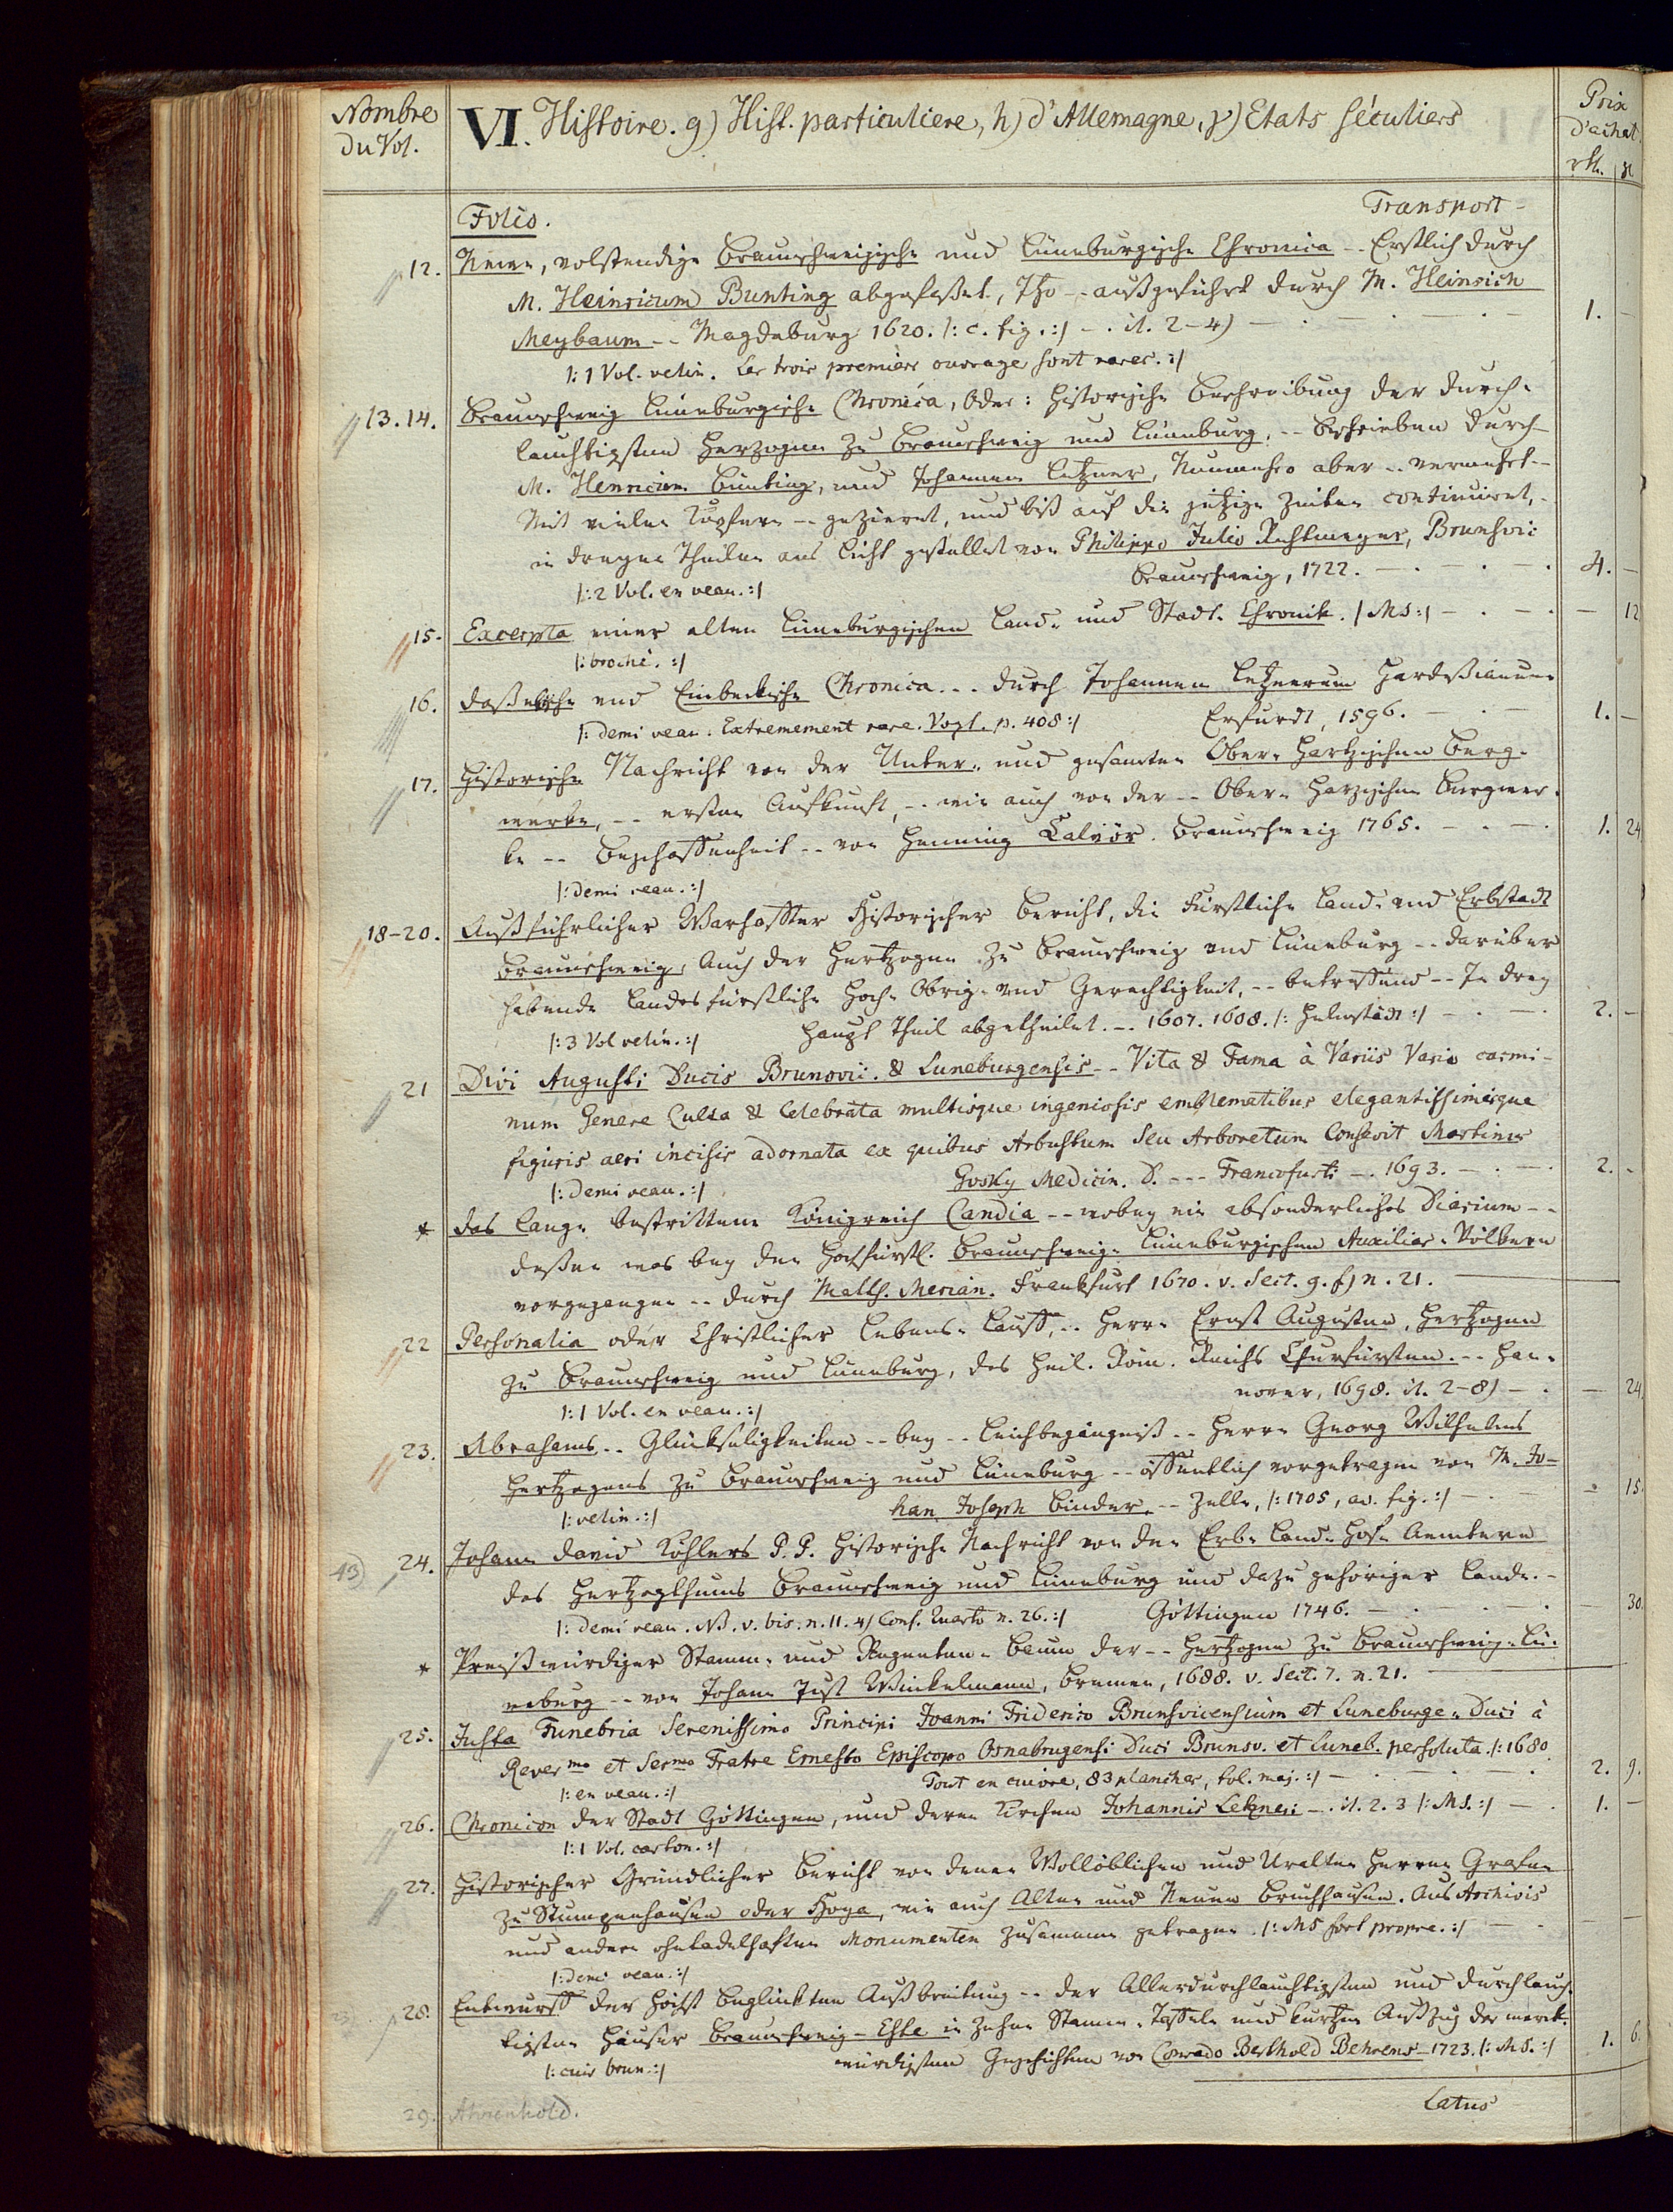 Nombre
du Vol.
VI. Histoire. g) Hist. particuliere, h) d'Allemagne, γ) Etats séculiers
Prix
d'achat.
rth.
Folio.
Transport -
12. Newe, volstendige Braunschweigische und Lüneburgische Chronica -- Erstlich durch
M. Heinricum Bunting abgefasset, Itzo -- außgeführt durch M. Heinrich
Meybaum -- Magdeburg 1620. /: c. fig. :/ -. it. 2-4) 1. -
/: 1 Vol. velin. Les trois premiers ouvrage sont rares. :/
13. 14. Braunschweig Lüneburgische Chronica, Oder: Historische Beschreibung der Durch-
lauchtigsten Herzogen zu Braunschweig und Lüneburg, -- Beschrieben durch
M. Henricum Bünting, und Johannem Letzner, Nunmehro aber -- vermehrt --
Mit vielen Kupfern -- gezieret, und biß auf die jetzige Zeiten continuiret, -
in dreyen Theilen ans Licht gestellet von Philippo Julio Rehtmeyer, Brunsvic:
Braunschweig, 1722. 4. -
/: 2 Vol. en veau. :/
15. Excerpta einer alten Lüneburgischen Land- und Stadt-Chronik. /: MS :/ - 12
/: broché. :/
16. Daßelische und Einbeckische Chronica... durch Johannem Letznerum Hardeßianum
Erfurdt, 1596. 1. -
/: demi veau. Extremement rare. Vogt. p. 408 :/
17. Historische Nachricht von der Unter- und gesamten Ober-Hartzischen Berg-
werke, -- ersten Aufkunft, -- wie auch von der -- Ober-Harzischen Bergwer-
ke -- Beschaffenheit -- von Henning Calvör. Braunschweig 1765. 1. 24
/: demi veau. :/
18-20. Außführlicher Warhaffter Historischer Bericht, die Fürstliche Land- und Erbstadt
Braunschweig, Auch der Hertzogen zu Braunschweig und Lüneburg -- darüber
habende Landesfürstliche Hoch- Obrig- und Gerechtigkeit, -- betreffend -- In drey
Haupt Theil abgetheilet. -. 1607. 1608. /: Helmstädt :/ 2. -
/: 3 Vol velin. :/
21 Divi Augusti Ducis Brunovic. & Luneburgensis -- Vita & Fama à Variis Vario carmi-
num Genere Culta & Celebrata multisque ingeniosis emblematibus elegantissimisque
figuris aeri incisis adornata ex quibus Arbustum seu Arboretum Consevit Martinus
Gosky Medicin. D. --- Francofurti -. 1693. 2. -
/: demi veau. :/
* Das lange bestrittene Königreich Candia -- wobey ein absonderliches Diarium --
deßen was bey den Hochfürstl. Braunschweig-Lüneburgischen Auxiliar-Völkern
vorgegangen -- durch Matth. Merian. Frankfurt 1670. v. Sect. g. f) n. 21.
22 Personalia oder Christlicher Lebens-Lauff, -. Herrn Ernst Augusten, Hertzogen
zu Braunschweig und Lüneburg, des Heil. Röm. Reichs Churfürsten. -- Han-
nover, 1698. it. 2-8) - 24
/: 1 Vol. en veau. :/
23. Abrahams -. Glückseligkeiten -- bey -- Leichbegängniß -- Herrn Georg Wilhelms
Hertzogens zu Braunschweig und Lüneburg -- öffentlich vorgetragen von M. Jo-
han Joseph Binder -- Zelle, /: 1705, av. fig. :/ - 15.
/: velin. :/
13) 24. Johann David Köhlers P. P. Historische Nachricht von den Erb-Land-Hof-Aemtern
des Hertzogthums Braunschweig und Lüneburg und dazu gehöriger Lande. -
Göttingen 1746. - 30.
/: demi veau. NB. v. bis. n. 11. 4) Conf. Quarto n. 26. :/
* Preißwürdiger Stamm- und Regenten-Baum der -- Hertzogen zu Braunschweig-Lü-
neburg -- von Johann Just Winkelmann, Bremen, 1688. v. Sect. 7. n. 21.
25. Justa Funebria Serenissimo Principi Joanni Friderico Brunsvicensium et Luneburge. Duci à
Revermo et Sermo Fratre Ernesto Episcopo Osnabrugensi Duci Brunsv. et Luneb. persoluta. /: 1680
Tout en cuivre, 83 planches, fol. maj. :/ 2. 9.
/: en veau. :/
26. Chronicon der Stadt Göttingen, und deren Kirchen Johannis Letzneri -. it. 2. 3 /: MS. :/ 1. -
/: 1 Vol. carton. :/
27. Historischer Gründlicher Bericht von denen Wollöblichen und Uralten Herren Grafen
zu Stumpenhausen oder Hoya, wie auch Alten und Neuen Bruchhausen. Aus Archivis
und andern ohntadelhaften Monumenten zusammen getragen. /: MS fort propre. :/ - -
/: demi veau. :/
28. Entwurff der höchst beglückten Außbreitung -- der Allerdurchlauchtigsten und Durchlauch-
tigsten Häuser Braunschweig-Este in zehen Stamm-Taffeln und kurtzen Außzug der merk-
würdigsten Geschichten von Conrado Berthold Behrens 1723. /: MS. :/ 1. 6.
/: cuir brun. :/
29. Ahrenhold.
Latus